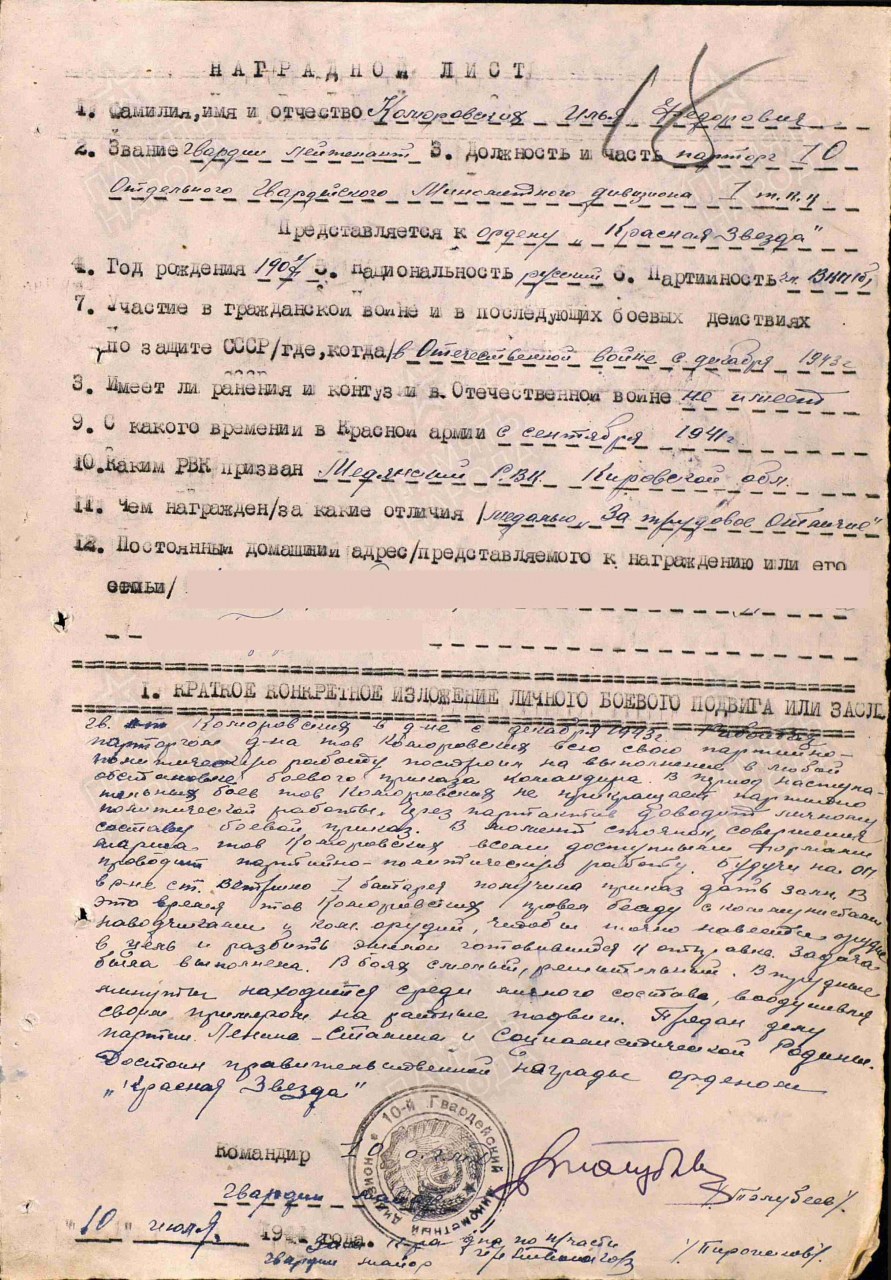 НАГРАДНОЙ ЛИСТ
1. Фамилия, имя и отчество Коморовских Илья Федорович
2. Звание гвардии лейтенант 3. Должность и часть парторг 10
Отдельного Гвардейского Минометного дивизиона 1 т.к.
Представляется к ордену „Красная Звезда"
4. Год рождения 1907 5. Национальность русский 6. Партийность чл. ВКП(б)
7. Участие в гражданской войне и в последующих боевых действиях
по защите СССР/где, когда/ в Отечественной войне с декабря 1943 г
8. Имеет ли ранения и контузии в Отечественной войне не имеет
9. С какого времени в Красной армии с сентября 1941 г.
10. Каким РВК призван Медянский РВК Кировской обл.
11. Чем награжден/за какие отличия/ медалью „За трудовое отличие"
12. Постоянный домашний адрес/представляемого к награждению или его
семьи/
I. КРАТКОЕ КОНКРЕТНОЕ ИЗЛОЖЕНИЕ ЛИЧНОГО БОЕВОГО ПОДВИГА ИЛИ ЗАСЛ
гв. л-т Коморовских в д-не с декабря 1943 г. Работая
парторгом д-на тов Коморовских всю свою партийно-
политическую работу построил на выполнение в любой
обстановке боевого приказа командира. В период наступа-
тельных боев тов Коморовских не прекращает партийно
политической работы. Через партактив доводит личному
составу боевой приказ. В момент стоянок, совершения
марша тов Коморовских всеми доступными формами
проводит партийно-политическую работу. Будучи на ОП
в р-не ст. Ветрино 1 батарея получила приказ дать залп. В
это время тов Коморовских провел беседу с коммунистами
наводчиками и ком. орудий, чтобы точно навести орудие
в цель и разбить эшелон готовившийся к отправке. Задача
была выполнена. В боях смелый, решительный. В трудные
минуты находится среди личного состава, воодушевляя
своим примером на ратные подвиги. Предан делу
партии Ленина-Сталина и Социалистической Родины.
Достоин правительственной награды орденом
„Красная Звезда"
Командир 10 о.
гвардии
Голубев
10-й Гвардейский минометный дивизион
"10" июля 19 года.
д-на по п/части
гвардии майор